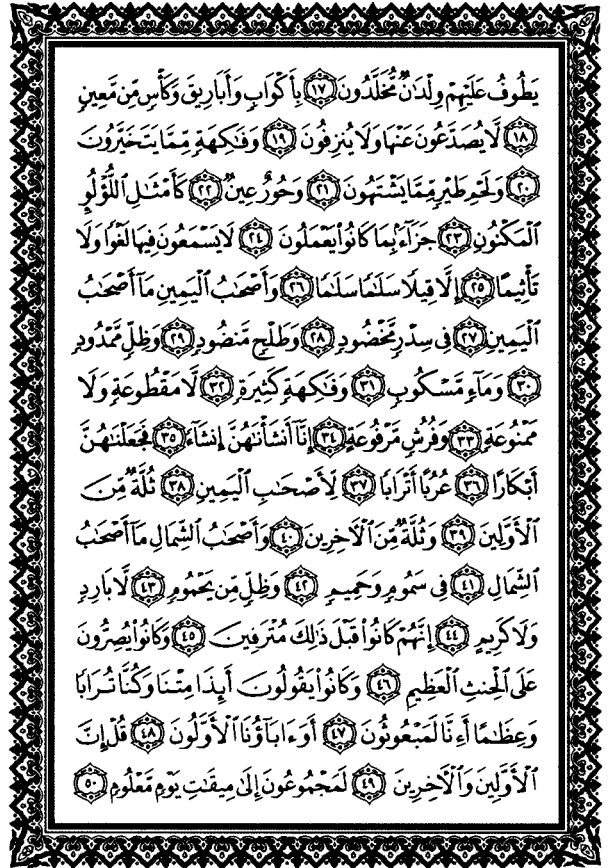 يَطُوفُ عَلَيْهِمْ وِلْدَٰنٌ مُّخَلَّدُونَ ﴿١٧﴾ بِأَكْوَابٍ وَأَبَارِيقَ وَكَأْسٍ مِّن مَّعِينٍ
﴿١٨﴾ لَّا يُصَدَّعُونَ عَنْهَا وَلَا يُنزِفُونَ ﴿١٩﴾ وَفَٰكِهَةٍ مِّمَّا يَتَخَيَّرُونَ
﴿٢٠﴾ وَلَحْمِ طَيْرٍ مِّمَّا يَشْتَهُونَ ﴿٢١﴾ وَحُورٌ عِينٌ ﴿٢٢﴾ كَأَمْثَٰلِ ٱللُّؤْلُؤِ
ٱلْمَكْنُونِ ﴿٢٣﴾ جَزَآءًۢ بِمَا كَانُوا۟ يَعْمَلُونَ ﴿٢٤﴾ لَا يَسْمَعُونَ فِيهَا لَغْوًا وَلَا
تَأْثِيمًا ﴿٢٥﴾ إِلَّا قِيلًا سَلَٰمًا سَلَٰمًا ﴿٢٦﴾ وَأَصْحَٰبُ ٱلْيَمِينِ مَآ أَصْحَٰبُ
ٱلْيَمِينِ ﴿٢٧﴾ فِى سِدْرٍ مَّخْضُودٍ ﴿٢٨﴾ وَطَلْحٍ مَّنضُودٍ ﴿٢٩﴾ وَظِلٍّ مَّمْدُودٍ
﴿٣٠﴾ وَمَآءٍ مَّسْكُوبٍ ﴿٣١﴾ وَفَٰكِهَةٍ كَثِيرَةٍ ﴿٣٢﴾ لَّا مَقْطُوعَةٍ وَلَا
مَمْنُوعَةٍ ﴿٣٣﴾ وَفُرُشٍ مَّرْفُوعَةٍ ﴿٣٤﴾ إِنَّآ أَنشَأْنَٰهُنَّ إِنشَآءً ﴿٣٥﴾ فَجَعَلْنَٰهُنَّ
أَبْكَارًا ﴿٣٦﴾ عُرُبًا أَتْرَابًا ﴿٣٧﴾ لِّأَصْحَٰبِ ٱلْيَمِينِ ﴿٣٨﴾ ثُلَّةٌ مِّنَ
ٱلْأَوَّلِينَ ﴿٣٩﴾ وَثُلَّةٌ مِّنَ ٱلْءَاخِرِينَ ﴿٤٠﴾ وَأَصْحَٰبُ ٱلشِّمَالِ مَآ أَصْحَٰبُ
ٱلشِّمَالِ ﴿٤١﴾ فِى سَمُومٍ وَحَمِيمٍ ﴿٤٢﴾ وَظِلٍّ مِّن يَحْمُومٍ ﴿٤٣﴾ لَّا بَارِدٍ
وَلَا كَرِيمٍ ﴿٤٤﴾ إِنَّهُمْ كَانُوا۟ قَبْلَ ذَٰلِكَ مُتْرَفِينَ ﴿٤٥﴾ وَكَانُوا۟ يُصِرُّونَ
عَلَى ٱلْحِنثِ ٱلْعَظِيمِ ﴿٤٦﴾ وَكَانُوا۟ يَقُولُونَ أَئِذَا مِتْنَا وَكُنَّا تُرَابًا
وَعِظَٰمًا أَءِنَّا لَمَبْعُوثُونَ ﴿٤٧﴾ أَوَءَابَآؤُنَا ٱلْأَوَّلُونَ ﴿٤٨﴾ قُلْ إِنَّ
ٱلْأَوَّلِينَ وَٱلْءَاخِرِينَ ﴿٤٩﴾ لَمَجْمُوعُونَ إِلَىٰ مِيقَٰتِ يَوْمٍ مَّعْلُومٍ ﴿٥٠﴾